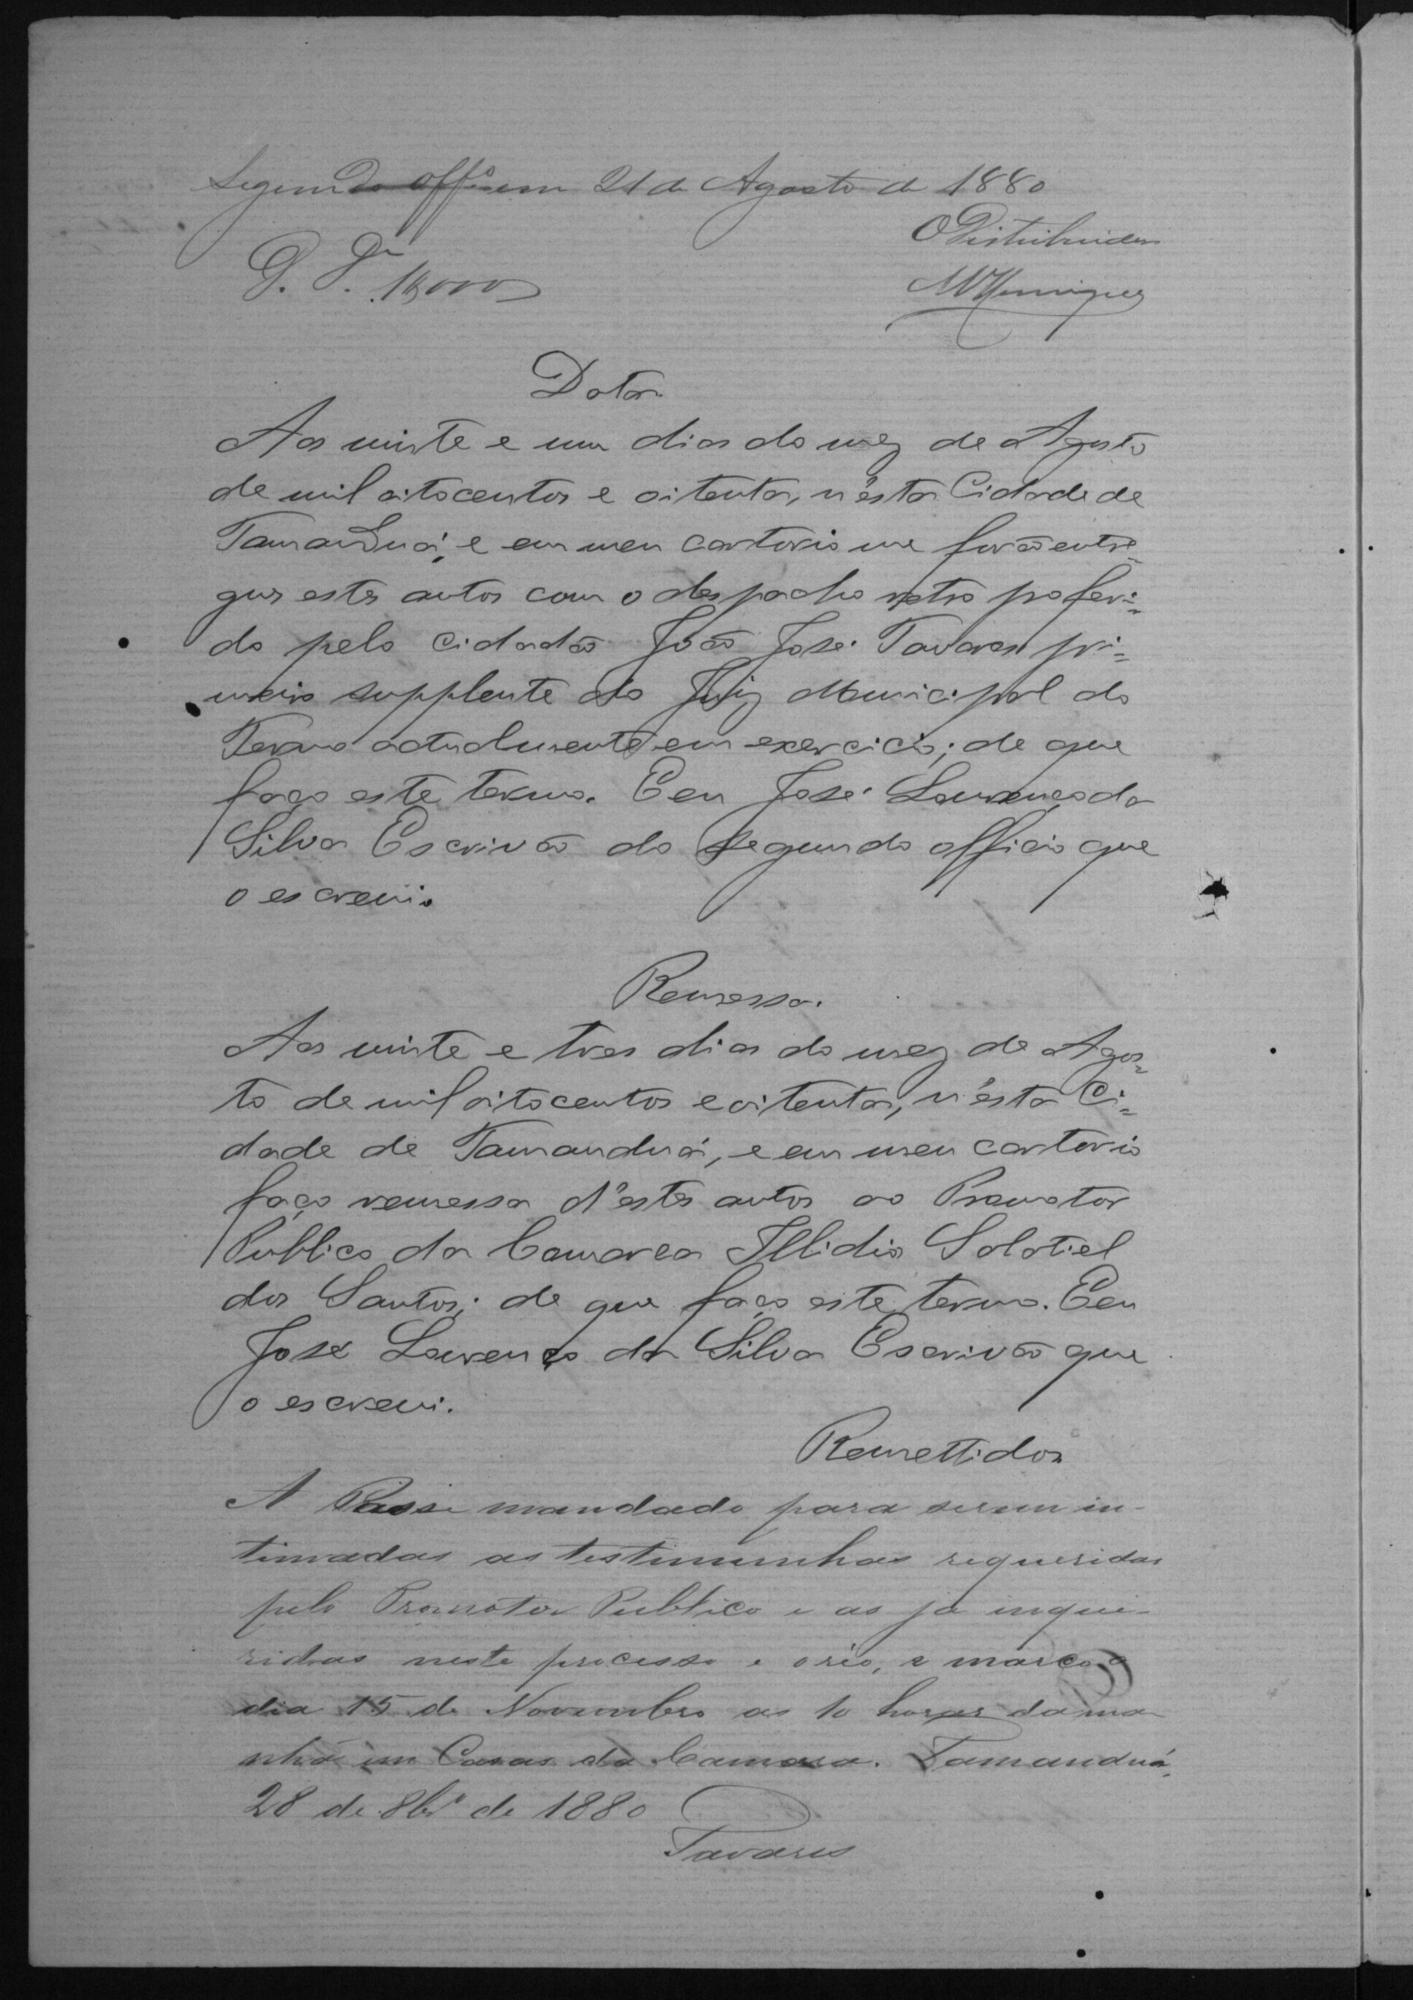 Segundo Offº em 21 de Agosto de 1880
O Distribuidor
D. Dr 1$000
MVHenriques
Data
Aos vinte e um dias do mez de Agosto
de mil oitocentos e oitenta, n'esta Cidade de
Tamanduá, e em meu cartorio me forão entre=
gues estes autos com o despacho retro proferi=
do pelo cidadão João José Tavares pri=
meiro supplente do Juiz Municipal do
Termo actualmente em exercicio; de que
faço este termo. Eeu José Lourenço da
Silva Escrivão do segundo officio que
o escrevi.
Remessa.
Aos vinte e tres dias do mez de Agos=
to de mil oitocentos e oitenta, n'esta Ci=
dade de Tamanduá, e em meu cartorio
faço remessa d'estes autos ao Promotor
Publico da Comarca Illidio Salatiel
dos Santos; de que faço este termo. Eeu
José Lourenço da Silva Escrivão que
o escrevi.
Remettidos
A Passe mandado para serem in-
timadas as testimunhas requeridas
pelo Promotor Publico e as ja inque-
ridas neste processo e o réo, e marco o
dia 15 de Novembro as 10 horas da ma-
nhã em Casas da Camara. Tamanduá,
28 de 8brº de 1880
Tavares